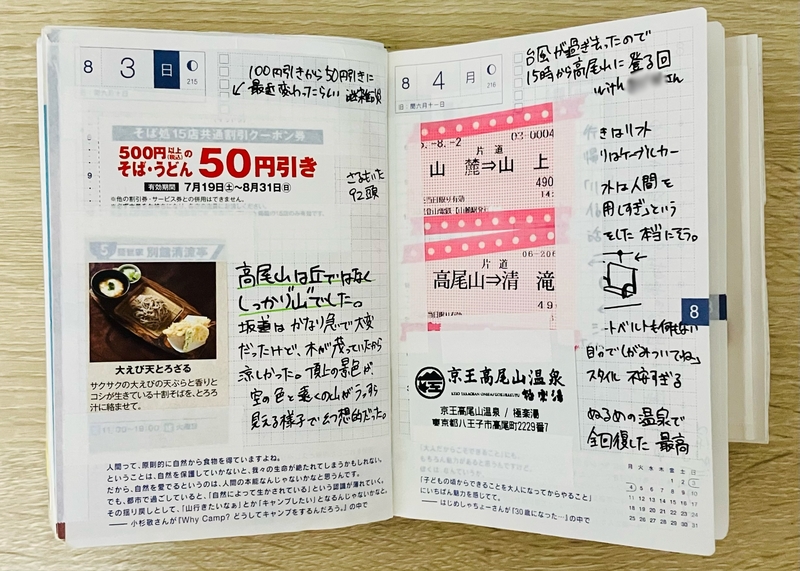 8 3 日 215
100円引きから50円引きに
最近変わったらしい
そば処15店共通割引クーポン券
500円以上(税込)の
そば・うどん 50円引き
有効期間 7月19日(土)〜8月31日(日)
※他の割引券・サービス券との併用はできません。
さるもいた
92頭
5 別館清流亭
大えび天とろざる
サクサクの大えびの天ぷらと香りと
コシが生きている十割そばを、とろろ
汁に絡ませて。
高尾山は丘ではなく
しっかり"山"でした。
坂道はかなり急で大変
だったけど、木が茂っていたから
涼しかった。頂上の景色が、
空の色と遠くの山がうっすら
見える様子で幻想的だった。
人間って、原則的に自然から食物を得ていますよね。
ということは、自然を保護していかないと、我々の生命が絶たれてしまうかもしれない。
だから、自然を愛でるというのは、人間の本能なんじゃないかなと思うんです。
でも、都市で過ごしていると、「自然によって生かされている」という認識が薄れていく。
その揺り戻しとして、「山行きたいなぁ」とか「キャンプしたい」となるんじゃないかなと。
―― 小杉敬さんが『Why Camp? どうしてキャンプをするんだろう。』の中で
8 4 月 216
旧 閏六月十一日
台風が過ぎ去ったので
15時から高尾山に登る回
with さん
5.-8.-2 03-0004
片道
山麓⇒山上
490
14:
当日限り有効
06-206
片道
高尾山⇒清滝
49
行きはリフト
帰りはケーブルカー
リフトは人間を
信用しすぎ」という
話をした 本当にそう。
シートベルトも何もない
自力で「しがみついてね」
スタイル 不安すぎる
8
京王高尾山温泉
KEIO TAKAOSAN ONSEN GOKURAKUYU 極楽湯
京王高尾山温泉 / 極楽湯
東京都八王子市高尾町2229番7
ぬるめの温泉で
全回復した 最高
「子どもの頃からできることを大人になってからやること」
にいちばん魅力を感じてて。
―― はじめしゃちょーさんが『30歳になった…』の中で
月 火 水 木 金 土 日
1 2 3
4 5 6 7 8 9 10
11 12 13 14 15 16 17
18 19 20 21 22 23 24
25 26 27 28 29 30 31